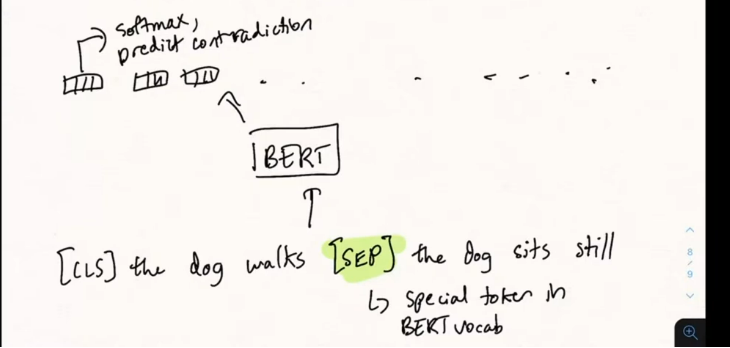 softmax,
predict contradiction
BERT
[CLS] the dog walks [SEP] the dog sits still
↳ special token in
BERT vocab
8
/
9